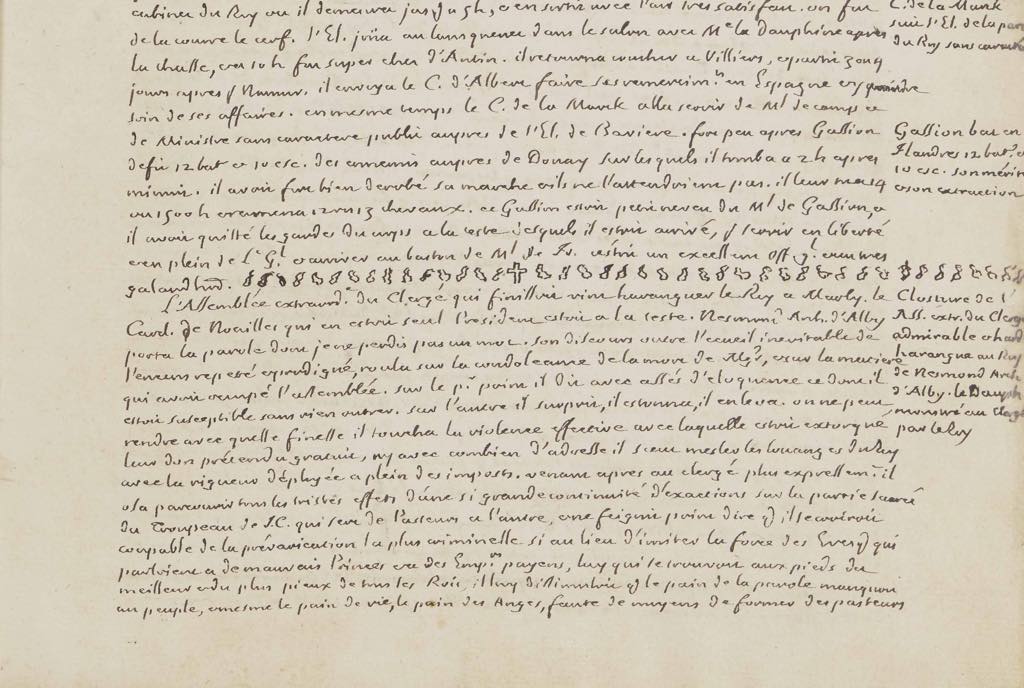 cabinet du Roy ou il demeura jusqu'à 5 h, et en sortit avec l'air tres satisfait. on fut
de la courre le cerf. l'El. joüa au lansquenet dans le salon avec Me la Dauphine apres
la chasse, et a 10 h fut souper chez d'Antin. il retourna coucher a Villiers, et partit 3 ou 4
jours apres p Namur. il envoya le C. d'Albert faire ses remercim.ns en Espagne et y prendre
soin de ses affaires. en mesme temps le C. de la Marck alla servir de Ml de camp et
de Ministre sans caractere public aupres de l'El. de Baviere. fort peu apres Gassion
defit 12 bat. et 10 esc. des ennemis aupres de Douay sur lesquels il tomba a 2 h apres
minuit. il avoit fort bien derobé sa marche et ils ne l'attendoient pas. il leur tua 14
ou 1500 h et ramena 12 ou 13 chevaux. ce Gassion estoit petit neveu du Ml de Gassion, et
il avoit quitté les gardes du corps a la teste desquels il estoit arrivé, p servir en liberté
et en plein de Lt Gl et arriver au baston de Ml de Fr. c'estoit un excellent off. gl. et un tres
galand hom̃.
L'Assemblée extraord.e du Clergé qui finissoit vint haranguer le Roy a Marly. le
Card. de Noailles qui en estoit seul President estoit a la teste. Nesmond Arch. d'Alby
porta la parole dont je ne perdis pas un mot. son discours outre l'écueil inevitable de
l'encens repeté et prodigué, roula sur la condoleance de la mort de Mgr, et sur la matiere
qui avoit occupé l'assemblée. sur le pr point il dit avec assés d'eloquence ce dont il
estoit susceptible sans rien outrer. sur l'autre il surprit, il estonna, il enleva. on ne peut
rendre avec quelle finesse il toucha la violence effective avec laquelle estoit extorqué
leur don prétendu gratuit, ny avec combien d'adresse il sceut mesler les louanges du Roy
avec la rigueur déployée a plein des imposts. venant apres au clergé plus expressem.t il
osa parcourir tous les tristes effets d'une si grande continuité d'exactions sur la partie sacrée
du Troupeau de J.C. qui sert de Pasteurs a l'autre, et ne feignit point dire q il se croiroit
coupable de la prévarication la plus criminelle si au lieu d'imiter la force des Evesq qui
parloient a de mauvais Princes et a des Emp.rs payens, luy qui se trouvoit aux pieds du
meilleur et du plus pieux de tous les Rois, il luy dissimuloit q le pain de la parole manquoit
au peuple, et mesme le pain de vie, le pain des Anges, faute de moyens de former des pasteurs
C. de la Marck
suit l'El. de la part
du Roy sans caractere
Gassion bat en
Flandres 12 bat. et
10 esc. son mérite
et son extraction
Closture de l'
Ass. extr. du Clergé
admirable et hardie
harangue au Roy
de Nesmond Arch
d'Alby. le Dauph
monstré au Clergé
par le Roy